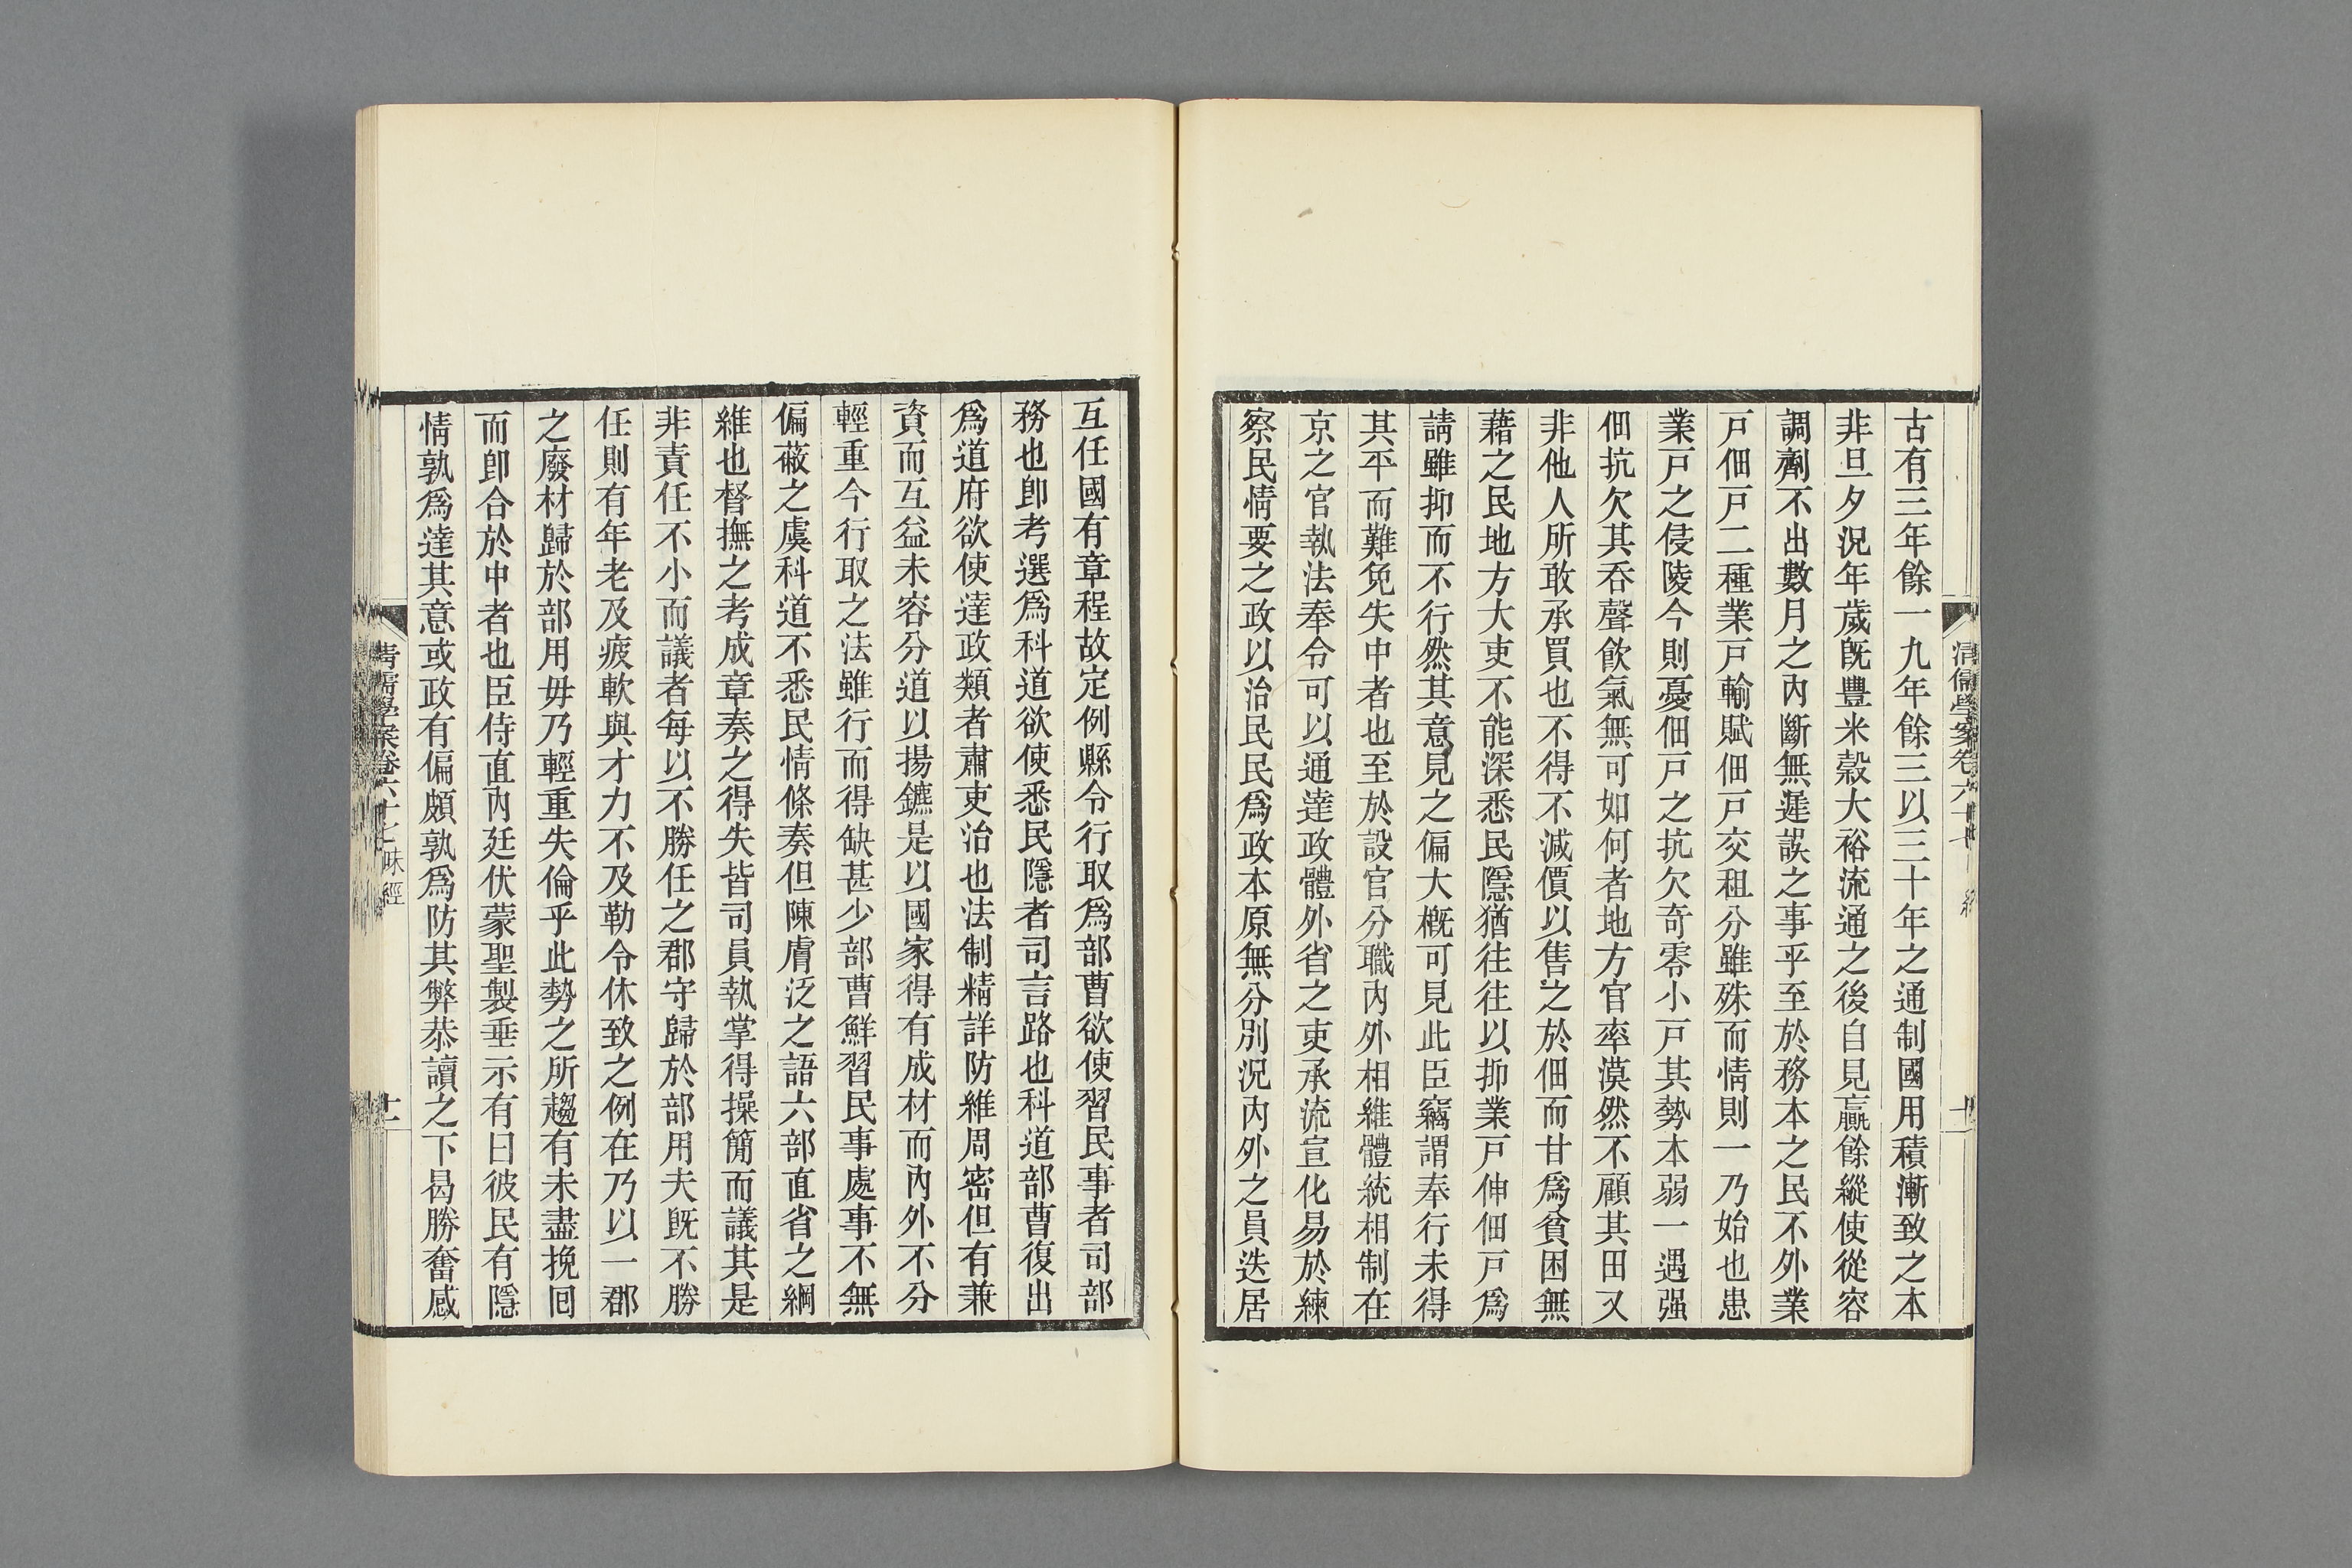 古有三年餘一九年餘三以三十年之通制國用積漸致之本
非旦夕況年歲既豐米穀大裕流通之後自見贏餘縱使從容
調劑不出數月之內斷無遲誤之事乎至於務本之民不外業
戶佃戶二種業戶輸賦佃戶交租分雖殊而情則一乃始也患
業戶之侵陵今則憂佃戶之抗欠奇零小戶其勢本弱一遇强
佃抗欠其吞聲飲氣無可如何者地方官率漠然不顧其田又
非他人所敢承買也不得不減價以售之於佃而甘爲貧困無
藉之民地方大吏不能深悉民隱猶往往以抑業戶伸佃戶爲
請雖抑而不行然其意見之偏大概可見此臣竊謂奉行未得
其平而難免失中者也至於設官分職內外相維體統相制在
京之官執法奉令可以通達政體外省之吏承流宣化易於練
察民情要之政以治民民爲政本原無分別況內外之員迭居
互任國有章程故定例縣令行取爲部曹欲使習民事者司部
務也卽考選爲科道欲使悉民隱者司言路也科道部曹復出
爲道府欲使達政類者肅吏治也法制精詳防維周密但有兼
資而互益未容分道以揚鑣是以國家得有成材而內外不分
輕重今行取之法雖行而得缺甚少部曹鮮習民事處事不無
偏蔽之虞科道不悉民情條奏但陳膚泛之語六部直省之綱
維也督撫之考成章奏之得失皆司員執掌得操簡而議其是
非責任不小而議者每以不勝任之郡守歸於部用夫既不勝
任則有年老及疲軟與才力不及勒令休致之例在乃以一郡
之廢材歸於部用毋乃輕重失倫乎此勢之所趨有未盡挽回
而卽合於中者也臣侍直內廷伏蒙聖製垂示有曰彼民有隱
情孰爲達其意或政有偏頗孰爲防其弊恭讀之下曷勝奮感
清儒學案卷六十七
清儒學案卷六十七 味經